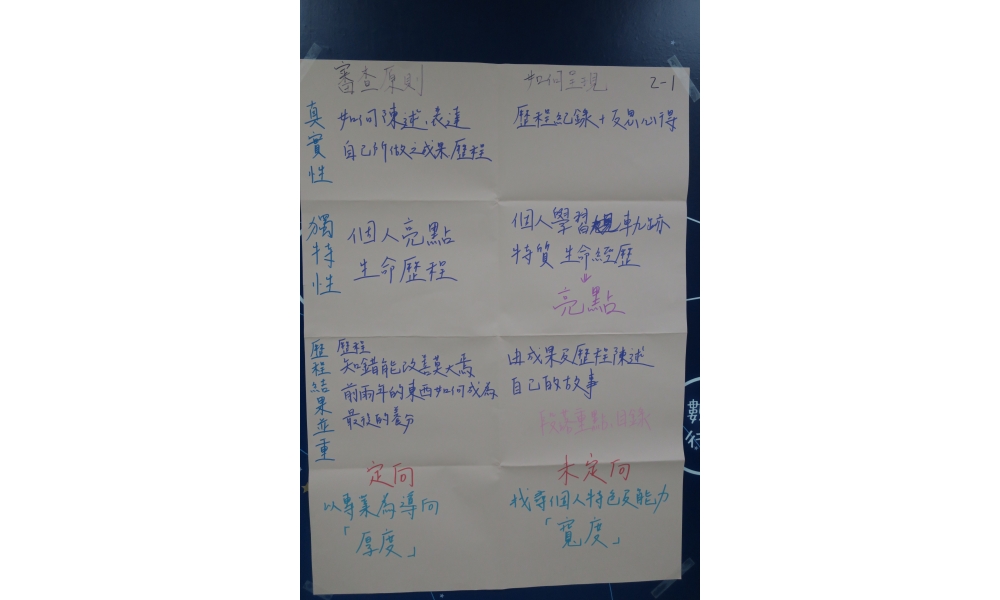 審查原則
如何呈現
2-1
真實性
如何陳述、表達
自己所做之成果歷程
歷程紀錄+反思心得
獨特性
個人亮點
生命歷程
個人學習軌跡
特質 生命經歷
亮點
歷程結果並重
歷程
知錯能改善莫大焉
前兩年的東西如何成為
最後的養分
由成果及歷程陳述
自己的故事
段落重點.目錄
定向
以專業為導向
「厚度」
未定向
找尋個人特色及能力
「寬度」
數
行